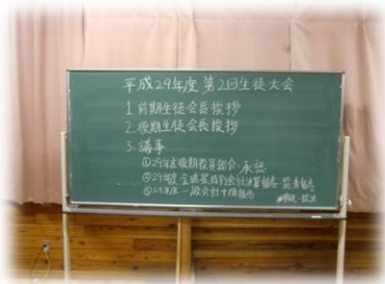 平成29年度 第2回生徒大会
1.前期生徒会長挨拶
2.後期生徒会長挨拶
3.議事
①29年度後期役員紹介・承認
②29年度 特別会計決算報告・監査報告
③29年度 一般会計中間報告